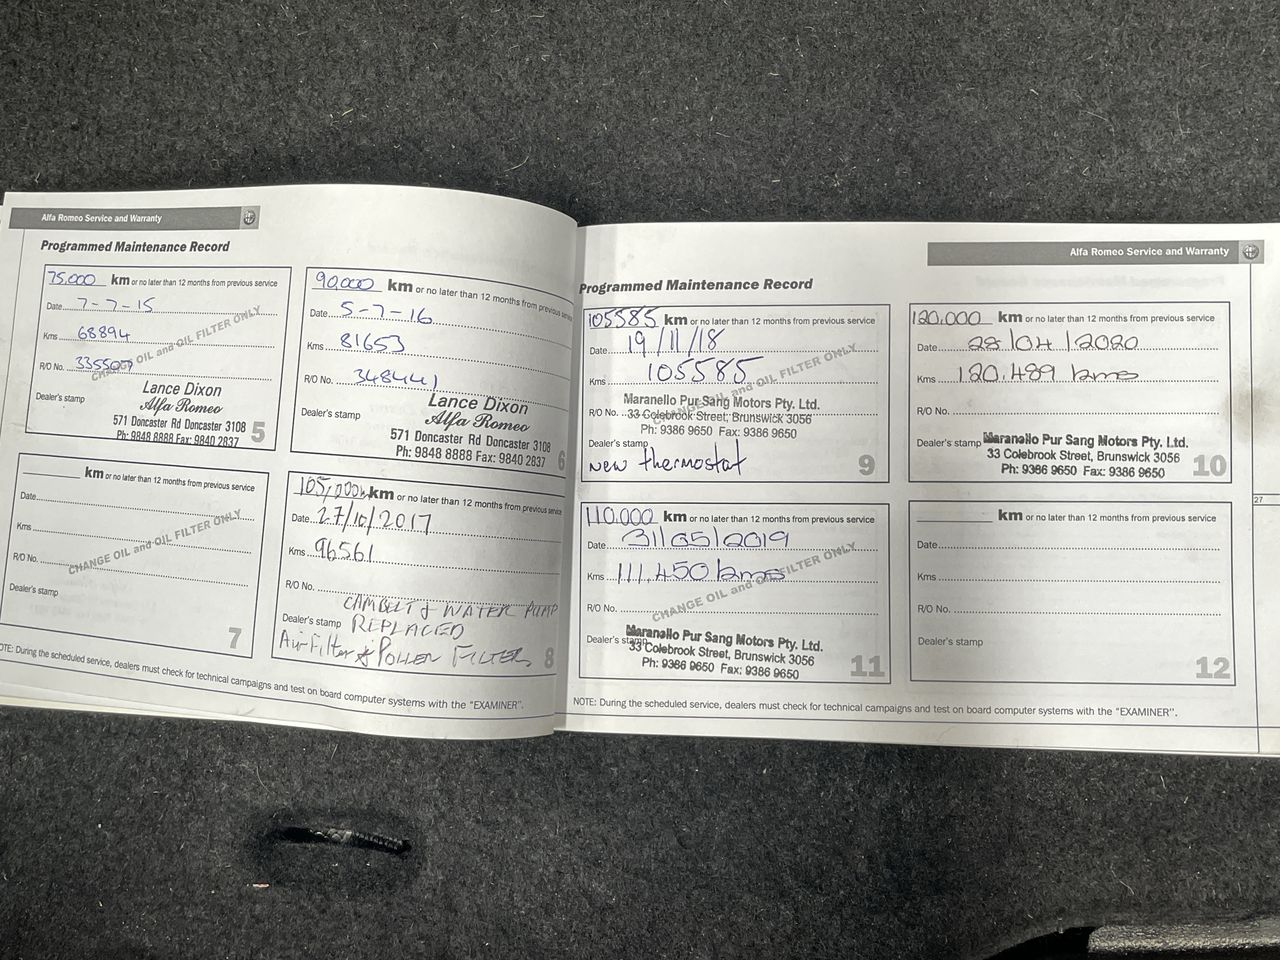 Alfa Romeo Service and Warranty
Programmed Maintenance Record
75,000 km or no later than 12 months from previous service
Date 7-7-15
Kms 68894
R/O No. 335507
CHANGE OIL and OIL FILTER ONLY
Dealer's stamp
Lance Dixon
Alfa Romeo
571 Doncaster Rd Doncaster 3108
Ph: 9848 8888 Fax: 9840 2837
5
90,000 km or no later than 12 months from previous service
Date 5-7-16
Kms 81653
R/O No. 348441
Dealer's stamp
Lance Dixon
Alfa Romeo
571 Doncaster Rd Doncaster 3108
Ph: 9848 8888 Fax: 9840 2837
6
km or no later than 12 months from previous service
Date
Kms
R/O No.
CHANGE OIL and OIL FILTER ONLY
Dealer's stamp
7
105,000k km or no later than 12 months from previous service
Date 27/10/2017
Kms 96561
R/O No.
CAMBELT & WATER PUMP
Dealer's stamp REPLACED
Air Filter & POLLEN FILTERS
8
OTE: During the scheduled service, dealers must check for technical campaigns and test on board computer systems with the "EXAMINER".
Alfa Romeo Service and Warranty
Programmed Maintenance Record
105585 km or no later than 12 months from previous service
Date 19/11/18
Kms 105585
CHANGE OIL and OIL FILTER ONLY
Maranello Pur Sang Motors Pty. Ltd.
R/O No. 33 Colebrook Street, Brunswick 3056
Ph: 9386 9650 Fax: 9386 9650
Dealer's stamp
new thermostat
9
120,000 km or no later than 12 months from previous service
Date 28/04/2020
Kms 120.489 kms
R/O No.
Dealer's stamp Maranello Pur Sang Motors Pty. Ltd.
33 Colebrook Street, Brunswick 3056
Ph: 9386 9650 Fax: 9386 9650
10
110.000 km or no later than 12 months from previous service
Date 31/05/2019
Kms 111.450 kms
R/O No.
CHANGE OIL and OIL FILTER ONLY
Dealer's stamp Maranello Pur Sang Motors Pty. Ltd.
33 Colebrook Street, Brunswick 3056
Ph: 9386 9650 Fax: 9386 9650
11
km or no later than 12 months from previous service
Date
Kms
R/O No.
Dealer's stamp
12
NOTE: During the scheduled service, dealers must check for technical campaigns and test on board computer systems with the "EXAMINER".
27